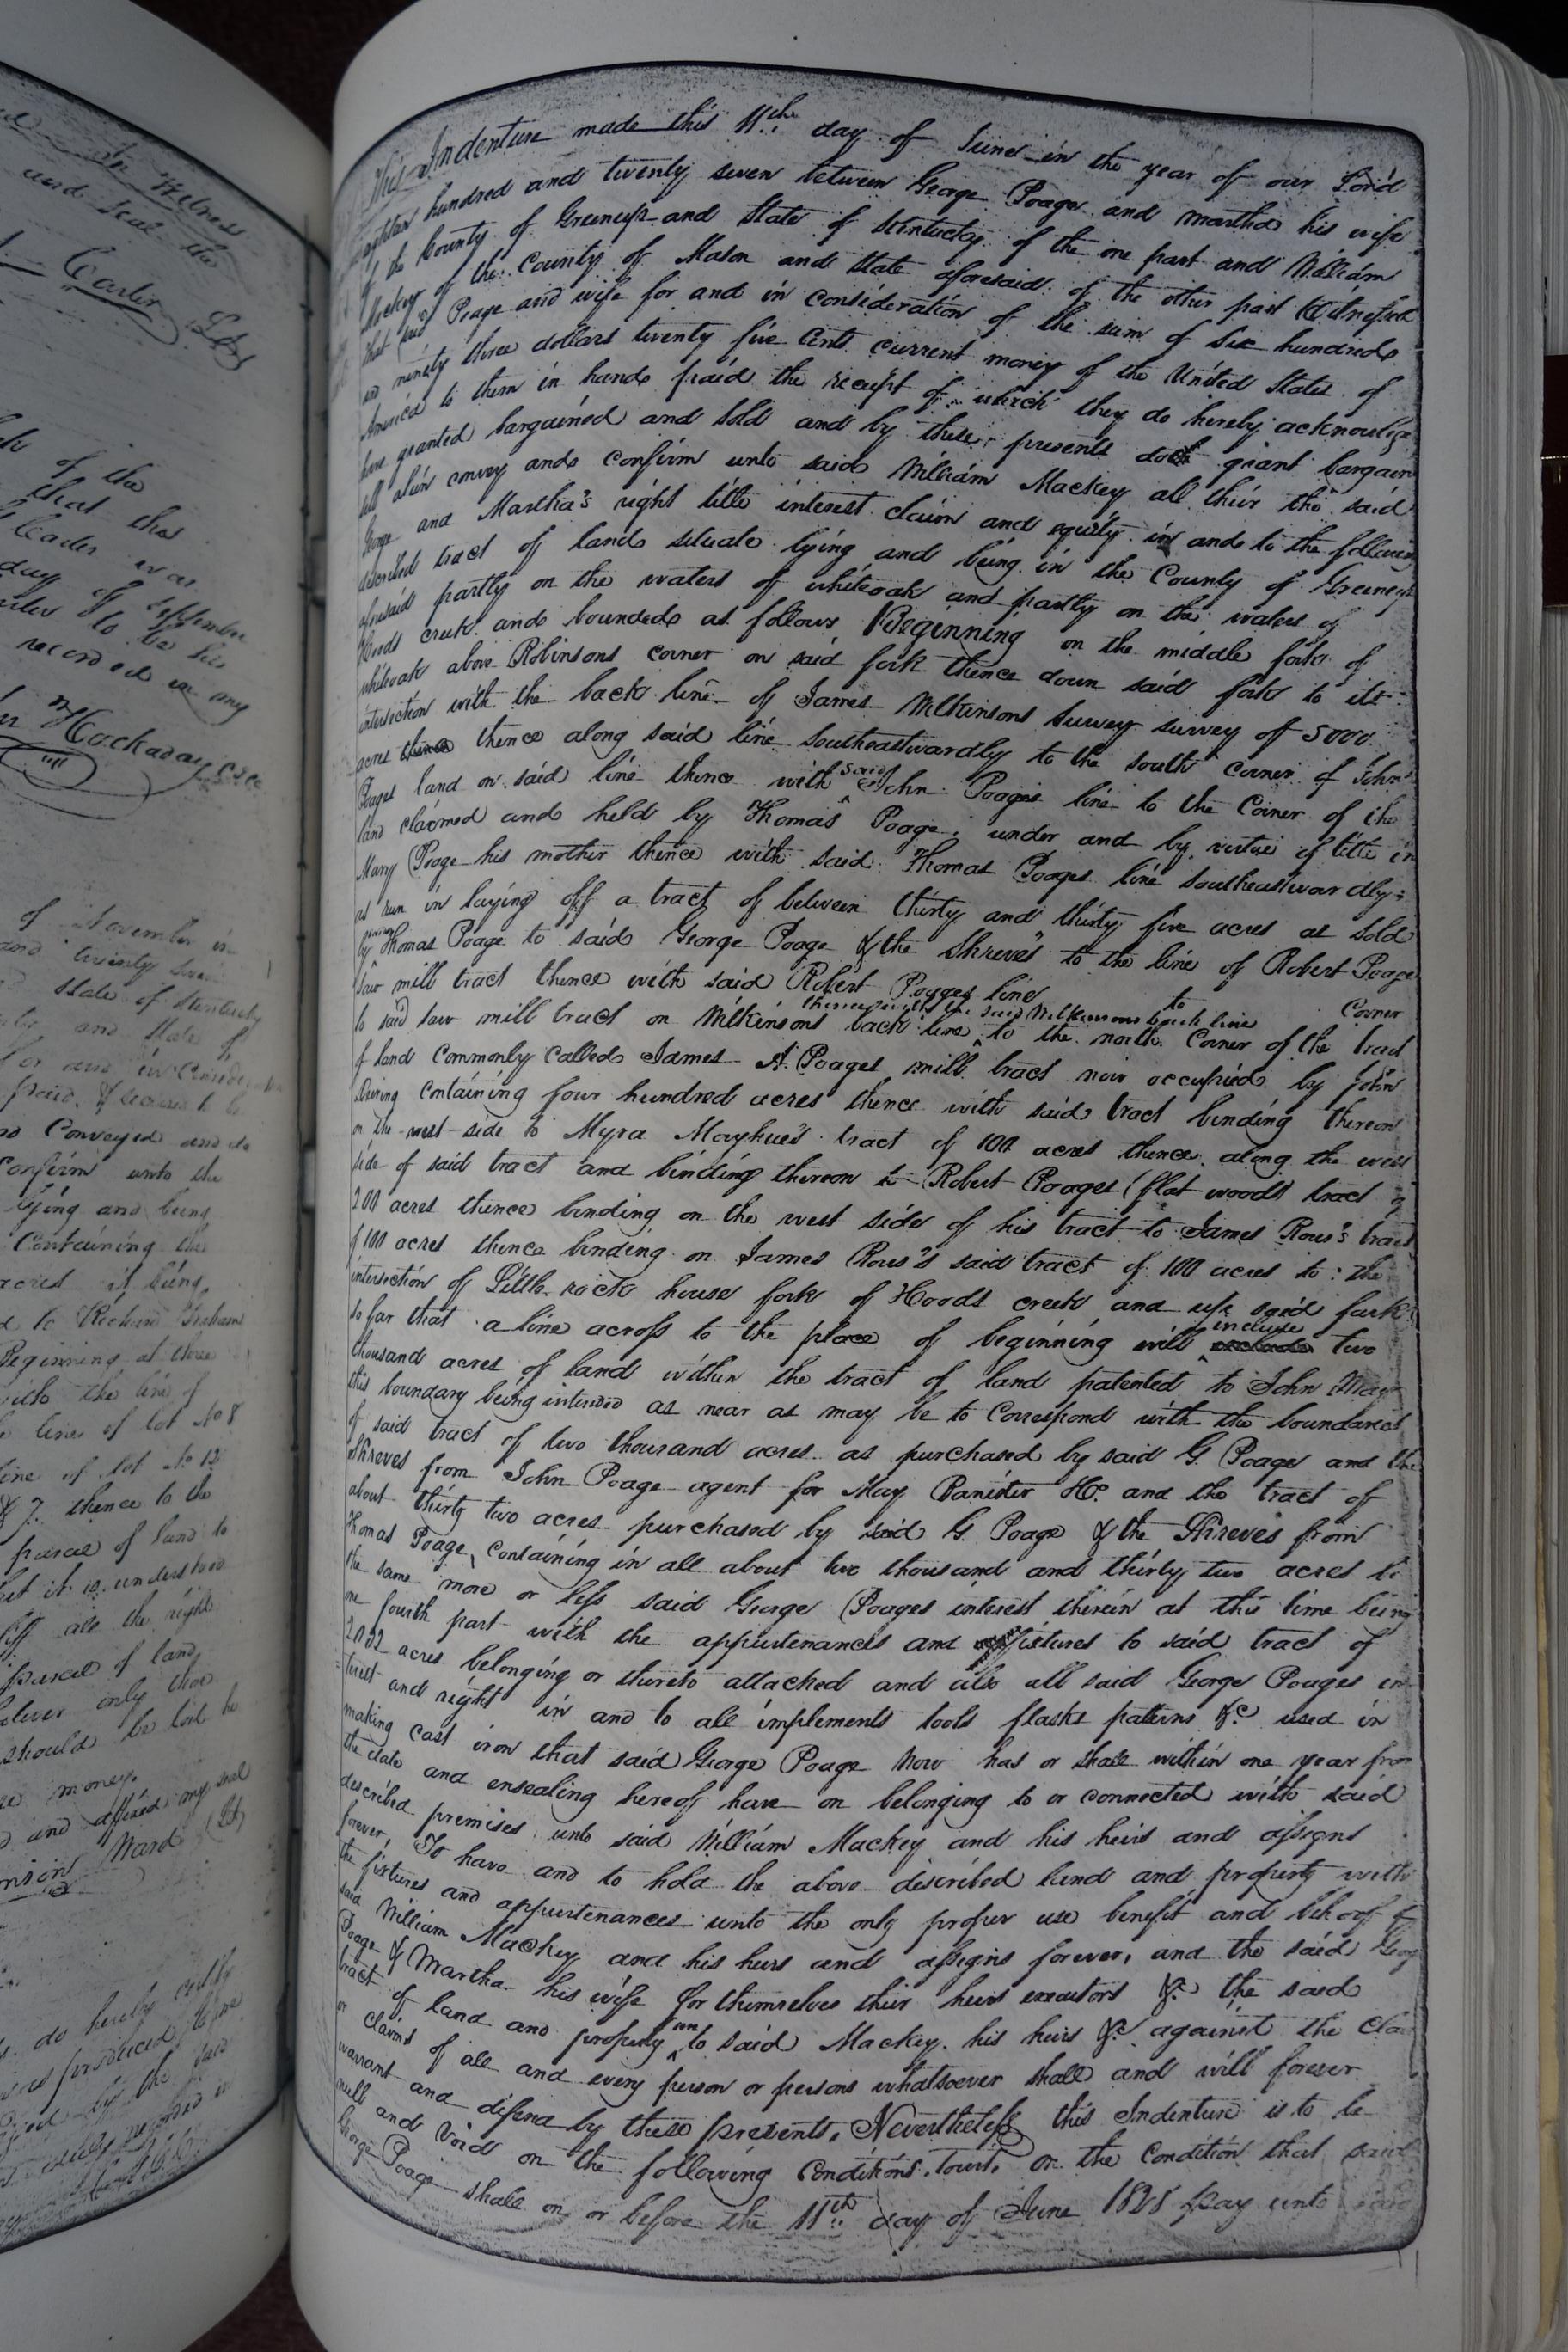 In Witness
and Seal the
Carter
of the
that this
Clerks
day of September
to be his
recorded in my
Hockaday CGCC
of November in
and twenty seven
State of Kentucky
and State of
for and in Consideration
paid, & secured to be
Conveyed and do
Confirm unto the
lying and being
Containing the
acres it being
to Richard Graham
Beginning at three
with the line of
lines of lot No 8
line of lot No 12
& 7. thence to the
parcel of land to
but it is understood
all the right
parcel of land
only that
should be lost he
money.
and affixed my seal
Ward
do hereby certify
was produced to me
by the
recorded in
This Indenture made this 11th day of June in the year of our Lord
eighteen hundred and twenty seven between George Poage and Martha his wife
of the County of Greenup and State of Kentucky of the one part and William
Mackey of the County of Mason and State aforesaid of the other part Witnesseth
that said Poage and wife for and in consideration of the sum of six hundred
and ninety three dollars twenty five Cents current money of the United States of
America to them in hand paid the receipt of which they do hereby acknowledge
have granted bargained and sold and by these presents doth grant bargain
sell alien convey and confirm unto said William Mackey all their the said
George and Martha's right title interest claim and equity in and to the following
described tract of land situate lying and being in the County of Greenup
aforesaid partly on the waters of whiteoak and partly on the waters of
Hoods creek and bounded as follows Beginning on the middle fork of
whiteoak above Robinsons corner on said fork thence down said fork to its
intersection with the back line of James Wilkinsons Survey survey of 5000
acres thence thence along said line Southeastwardly to the south corner of John
Poages land on said line thence with said John Poages line to the Corner of the
land claimed and held by Thomas Poage under and by virtue of title in
Mary Poage his mother thence with said Thomas Poages line southeastwardly
as run in laying off a tract of between thirty and thirty five acres as sold
by Thomas Poage to said George Poage & the Shreves to the line of Robert Poage
Saw mill tract thence with said Robert Poages line to Corner
to said saw mill tract on Wilkinsons back line thence with the said Wilkinsons back line to the north Corner of the tract
of land commonly called James A. Poages mill tract now occupied by John
Containing four hundred acres thence with said tract binding thereon
on the west side to Myra Mayhue's tract of 100 acres thence along the west
side of said tract and binding thereon to Robert Poages (flat woods) tract of
200 acres thence binding on the west side of his tract to James Rous's tract
of 100 acres thence binding on James Rous's said tract of 100 acres to the
intersection of Little rock house fork of Hoods creek and up said fork
so far that a line across to the place of beginning will exclude include two
thousand acres of land within the tract of land patented to John May
this boundary being intended as near as may be to Correspond with the boundaries
of said tract of two thousand acres as purchased by said G. Poage and the
Shreves from John Poage agent for May Banister &c. and the tract of
about thirty two acres purchased by said G. Poage & the Shreves from
Thomas Poage, Containing in all about two thousand and thirty two acres be
the same more or less said George Poages interest therein at this time being
one fourth part with the appurtenances and fixtures to said tract of
2032 acres belonging or thereto attached and also all said George Poages in-
terest and right in and to all implements tools flasks patterns &c used in
making cast iron that said George Poage now has or shall within one year from
the date and ensealing hereof have on belonging to or connected with said
described premises unto said William Mackey and his heirs and assigns
forever, To have and to hold the above described land and property with
the fixtures and appurtenances unto the only proper use benefit and behoof of
said William Mackey and his heirs and assigns forever, and the said George
Poage & Martha his wife for themselves their heirs executors &c the said
tract of land and property unto said Mackey his heirs &c against the claim
or claims of all and every person or persons whatsoever shall and will forever
warrant and defend by these presents, Nevertheless this Indenture is to be
null and void on the following Conditions, Towit, on the Condition that said
George Poage shall on or before the 11th day of June 1828 pay unto said